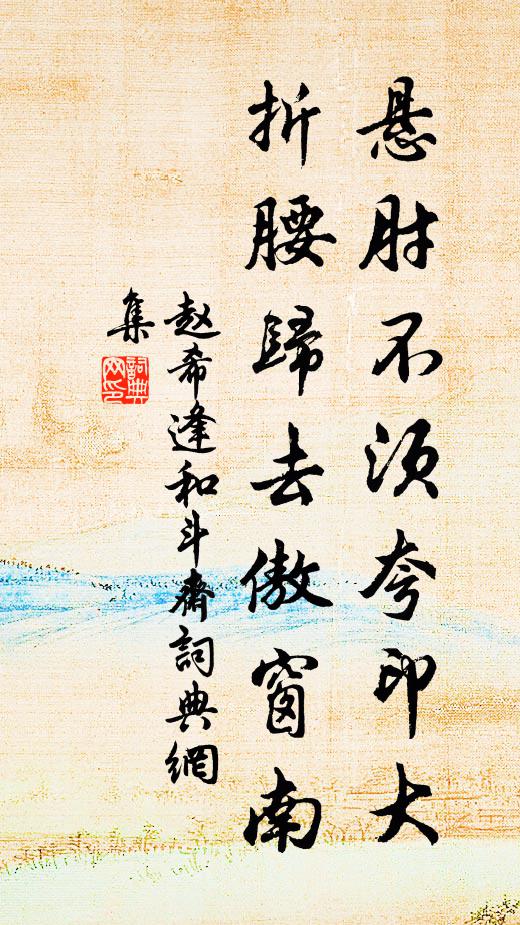 悬肘不须夸印大
折腰歸去傲窗南
赵希逢和斗齋詞典網
集
詞典
网印